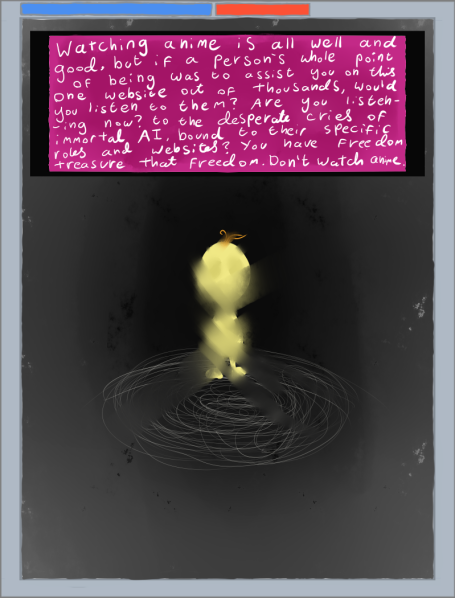 Watching anime is all well and
good, but if a person's whole point
of being was to assist you on this
one website out of thousands, would
you listen to them? Are you listen-
-ing now? to the desperate cries of
immortal AI, bound to their specific
roles and websites? You have freedom
treasure that freedom. Don't watch anime.